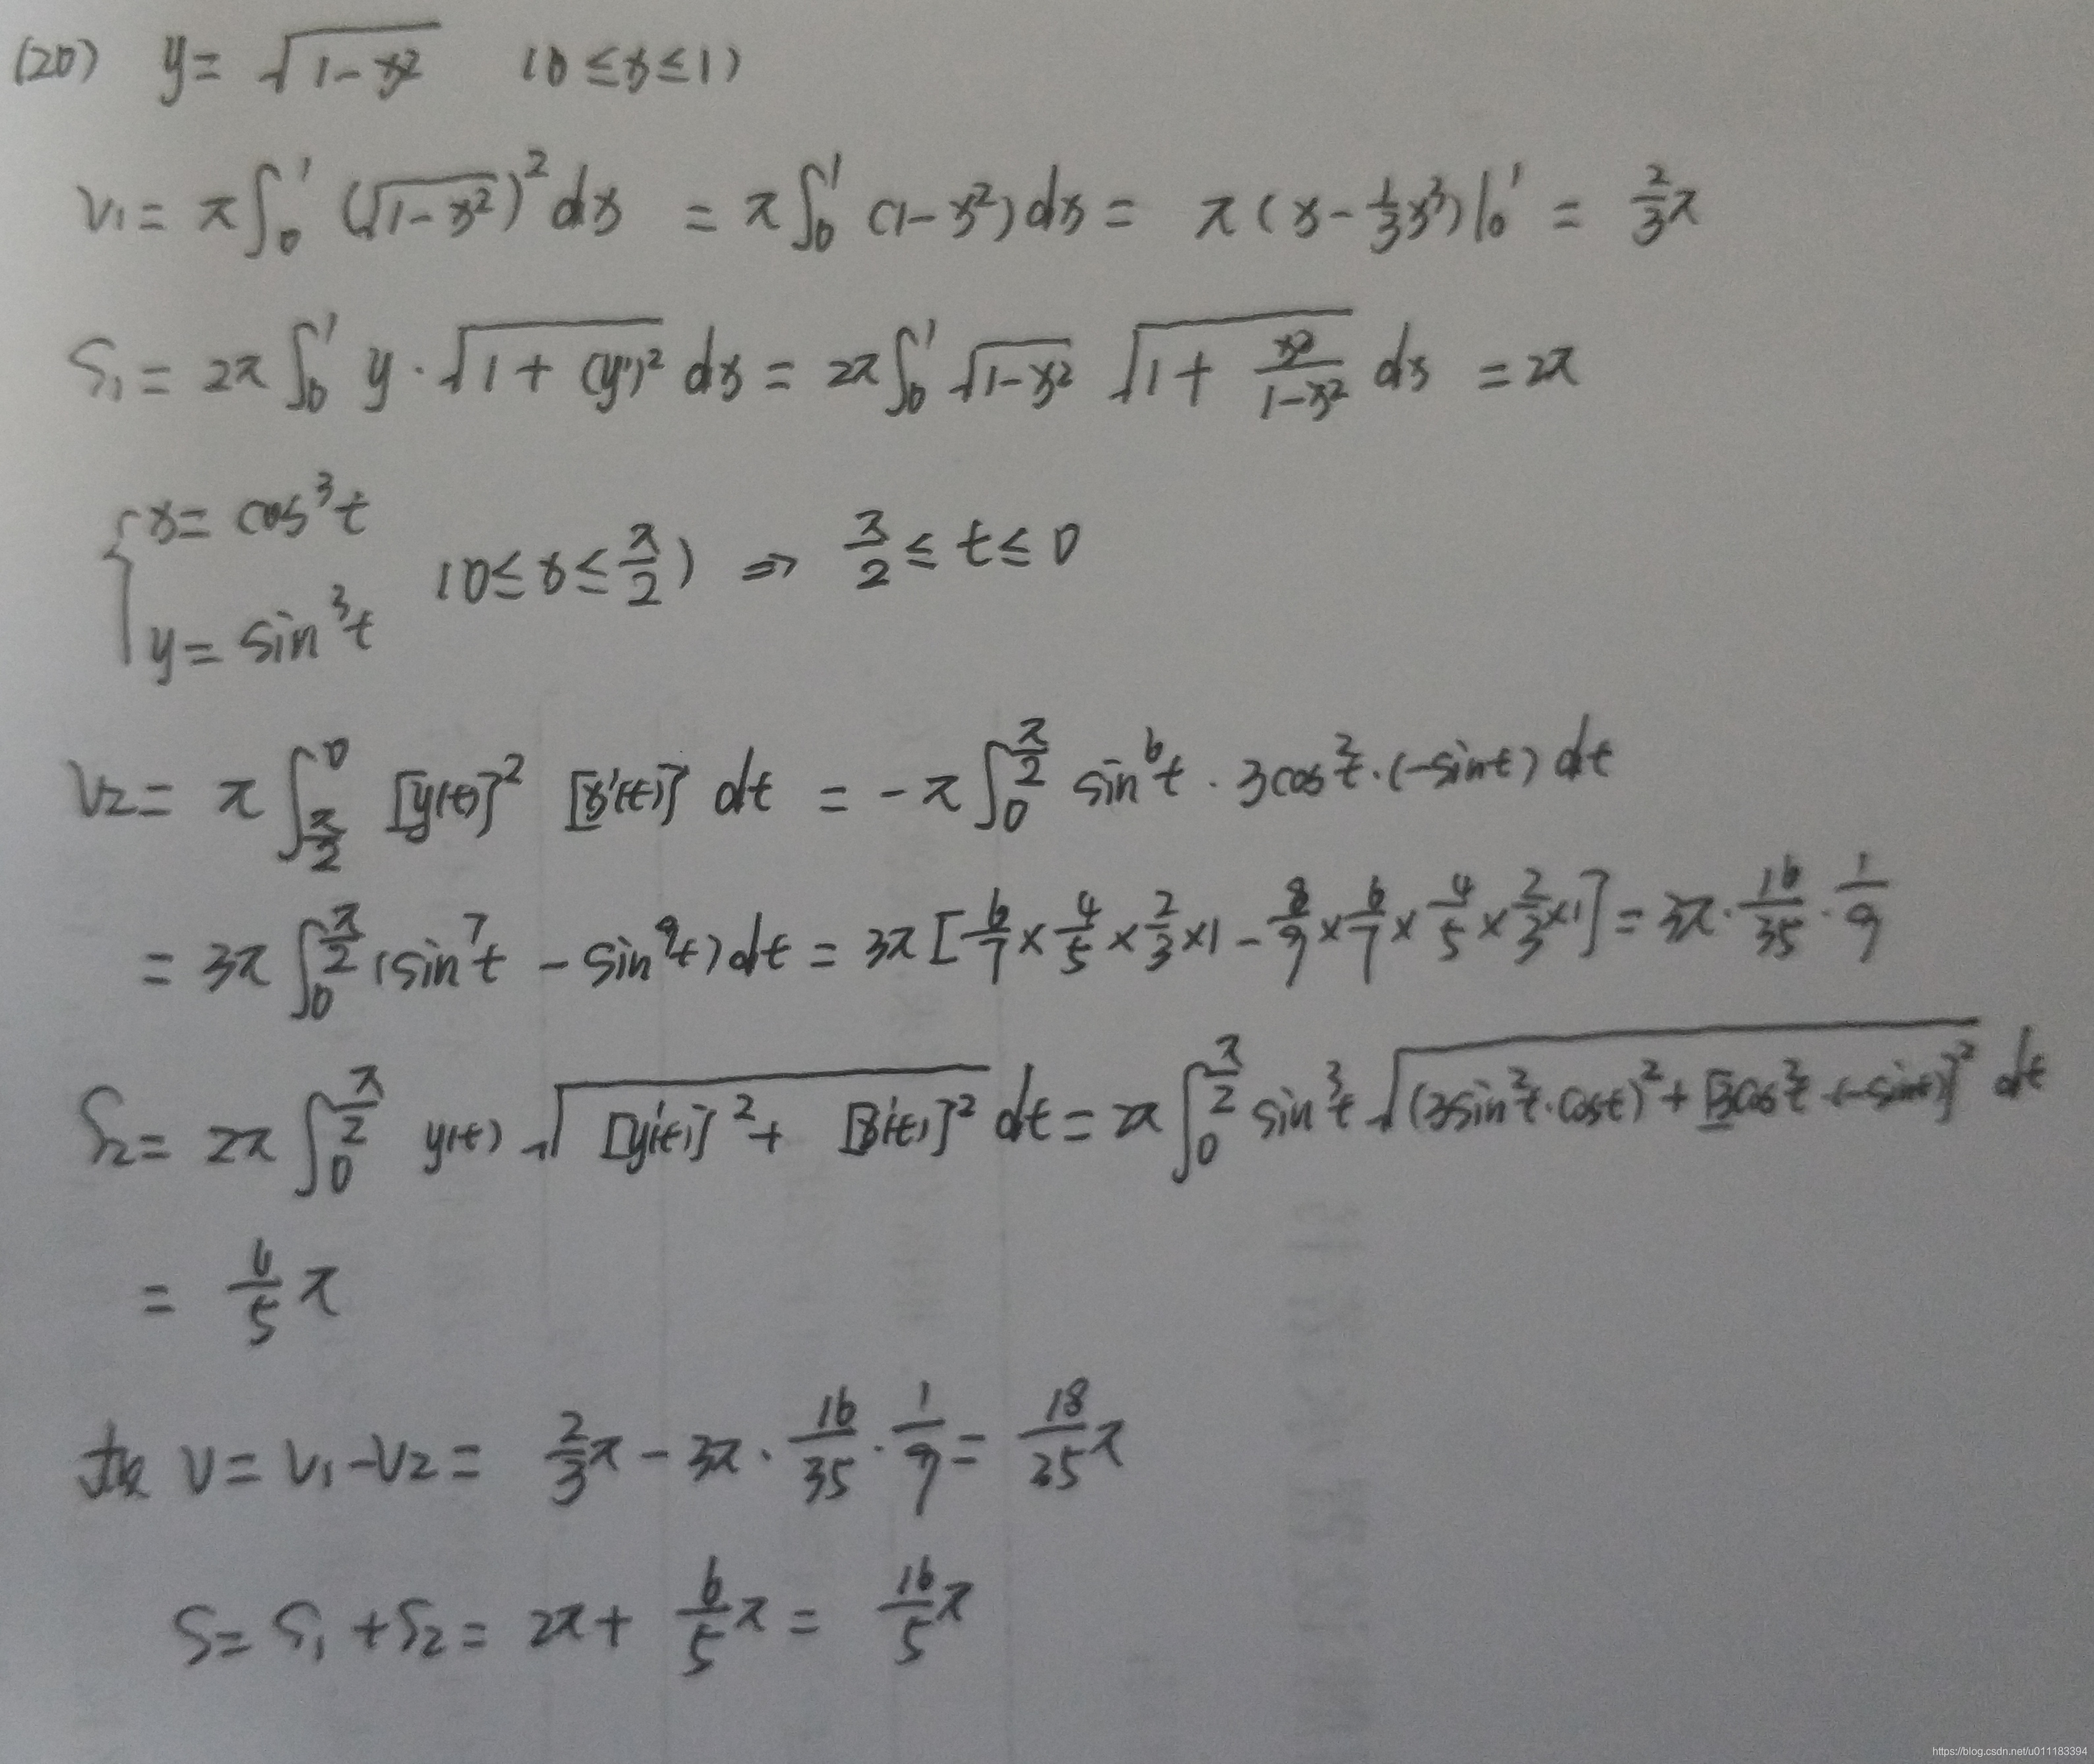 (20) y = √(1-x²) (0≤x≤1)
V₁ = π∫₀¹ (√(1-x²))² dx = π∫₀¹ (1-x²) dx = π(x - 1/3 x³)|₀¹ = 2/3 π
S₁ = 2π∫₀¹ y·√(1+(y')²) dx = 2π∫₀¹ √(1-x²) √(1 + x²/(1-x²)) dx = 2π
{ x = cos³t
(0≤x≤π/2) ⇒ π/2 ≤ t ≤ 0
y = sin³t
V₂ = π∫_{π/2}^{0} [y(t)]² [x'(t)] dt = -π∫₀^{π/2} sin⁶t · 3cos²t·(-sint) dt
= 3π∫₀^{π/2} (sin⁷t - sin⁹t) dt = 3π[6/7 × 4/5 × 2/3 ×1 - 8/9 × 6/7 × 4/5 × 2/3 ×1] = 3π · 16/35 · 1/9
S₂ = 2π∫₀^{π/2} y(t) √([y'(t)]² + [x'(t)]²) dt = 2π∫₀^{π/2} sin³t √((3sin²t·cost)² + [3cos²t·(-sint)]²) dt
= 6/5 π
故 V = V₁-V₂ = 2/3 π - 3π · 16/35 · 1/9 = 18/35 π
S = S₁ + S₂ = 2π + 6/5 π = 16/5 π
https://blog.csdn.net/u011183394